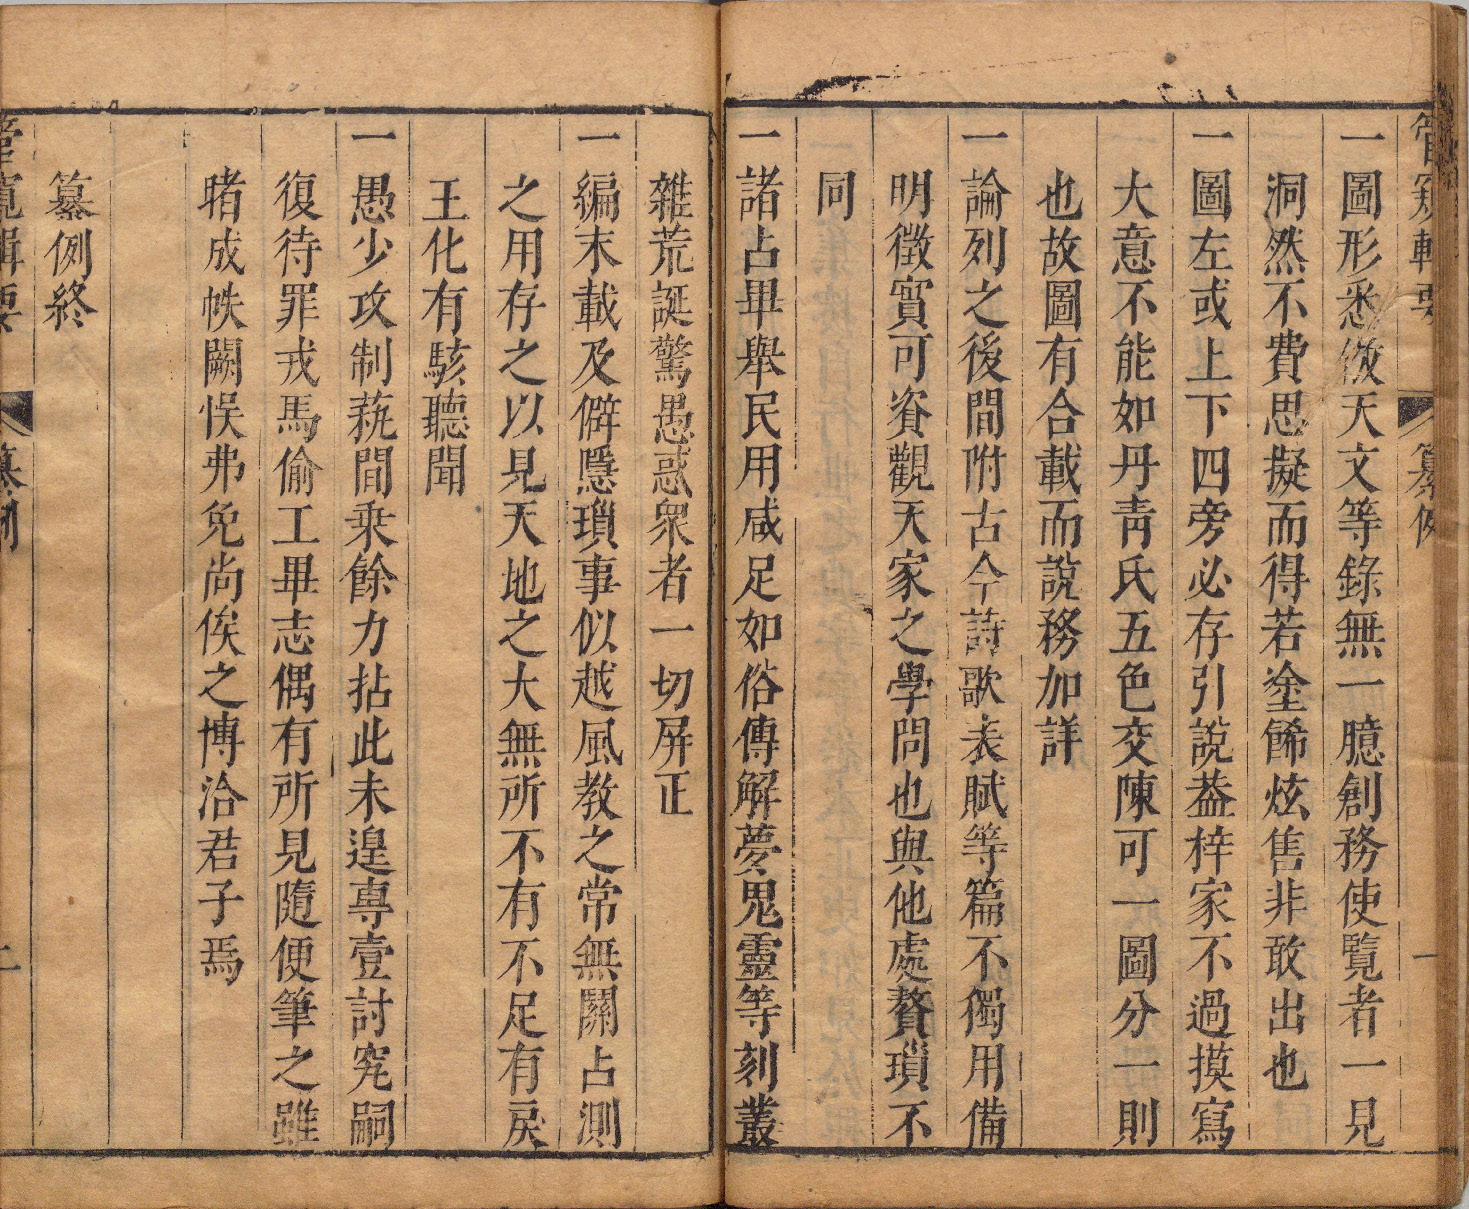 管窺輯要 纂例 一
一圖形悉倣天文等錄無一臆創務使覽者一見
洞然不費思擬而得若塗餙炫售非敢出也
一圖左或上下四旁必存引說葢梓家不過摸寫
大意不能如丹靑氏五色交陳可一圖分一則
也故圖有合載而說務加詳
一論列之後間附古今詩歌表賦等篇不獨用備
明徵實可資觀天家之學問也與他處贅瑣不
同
一諸占畢舉民用咸足如俗傳解夢鬼靈等刻叢
雜荒誕驚愚惑衆者一切屏正
一編末載及僻隱瑣事似越風教之常無關占測
之用存之以見天地之大無所不有不足有戾
王化有駭聽聞
一愚少攻制蓺間乗餘力拈此未遑專壹討究嗣
復待罪戎馬偷工畢志偶有所見隨便筆之雖
晭成帙闕悞弗免尚俟之博洽君子焉
纂例終
管窺輯要 纂例